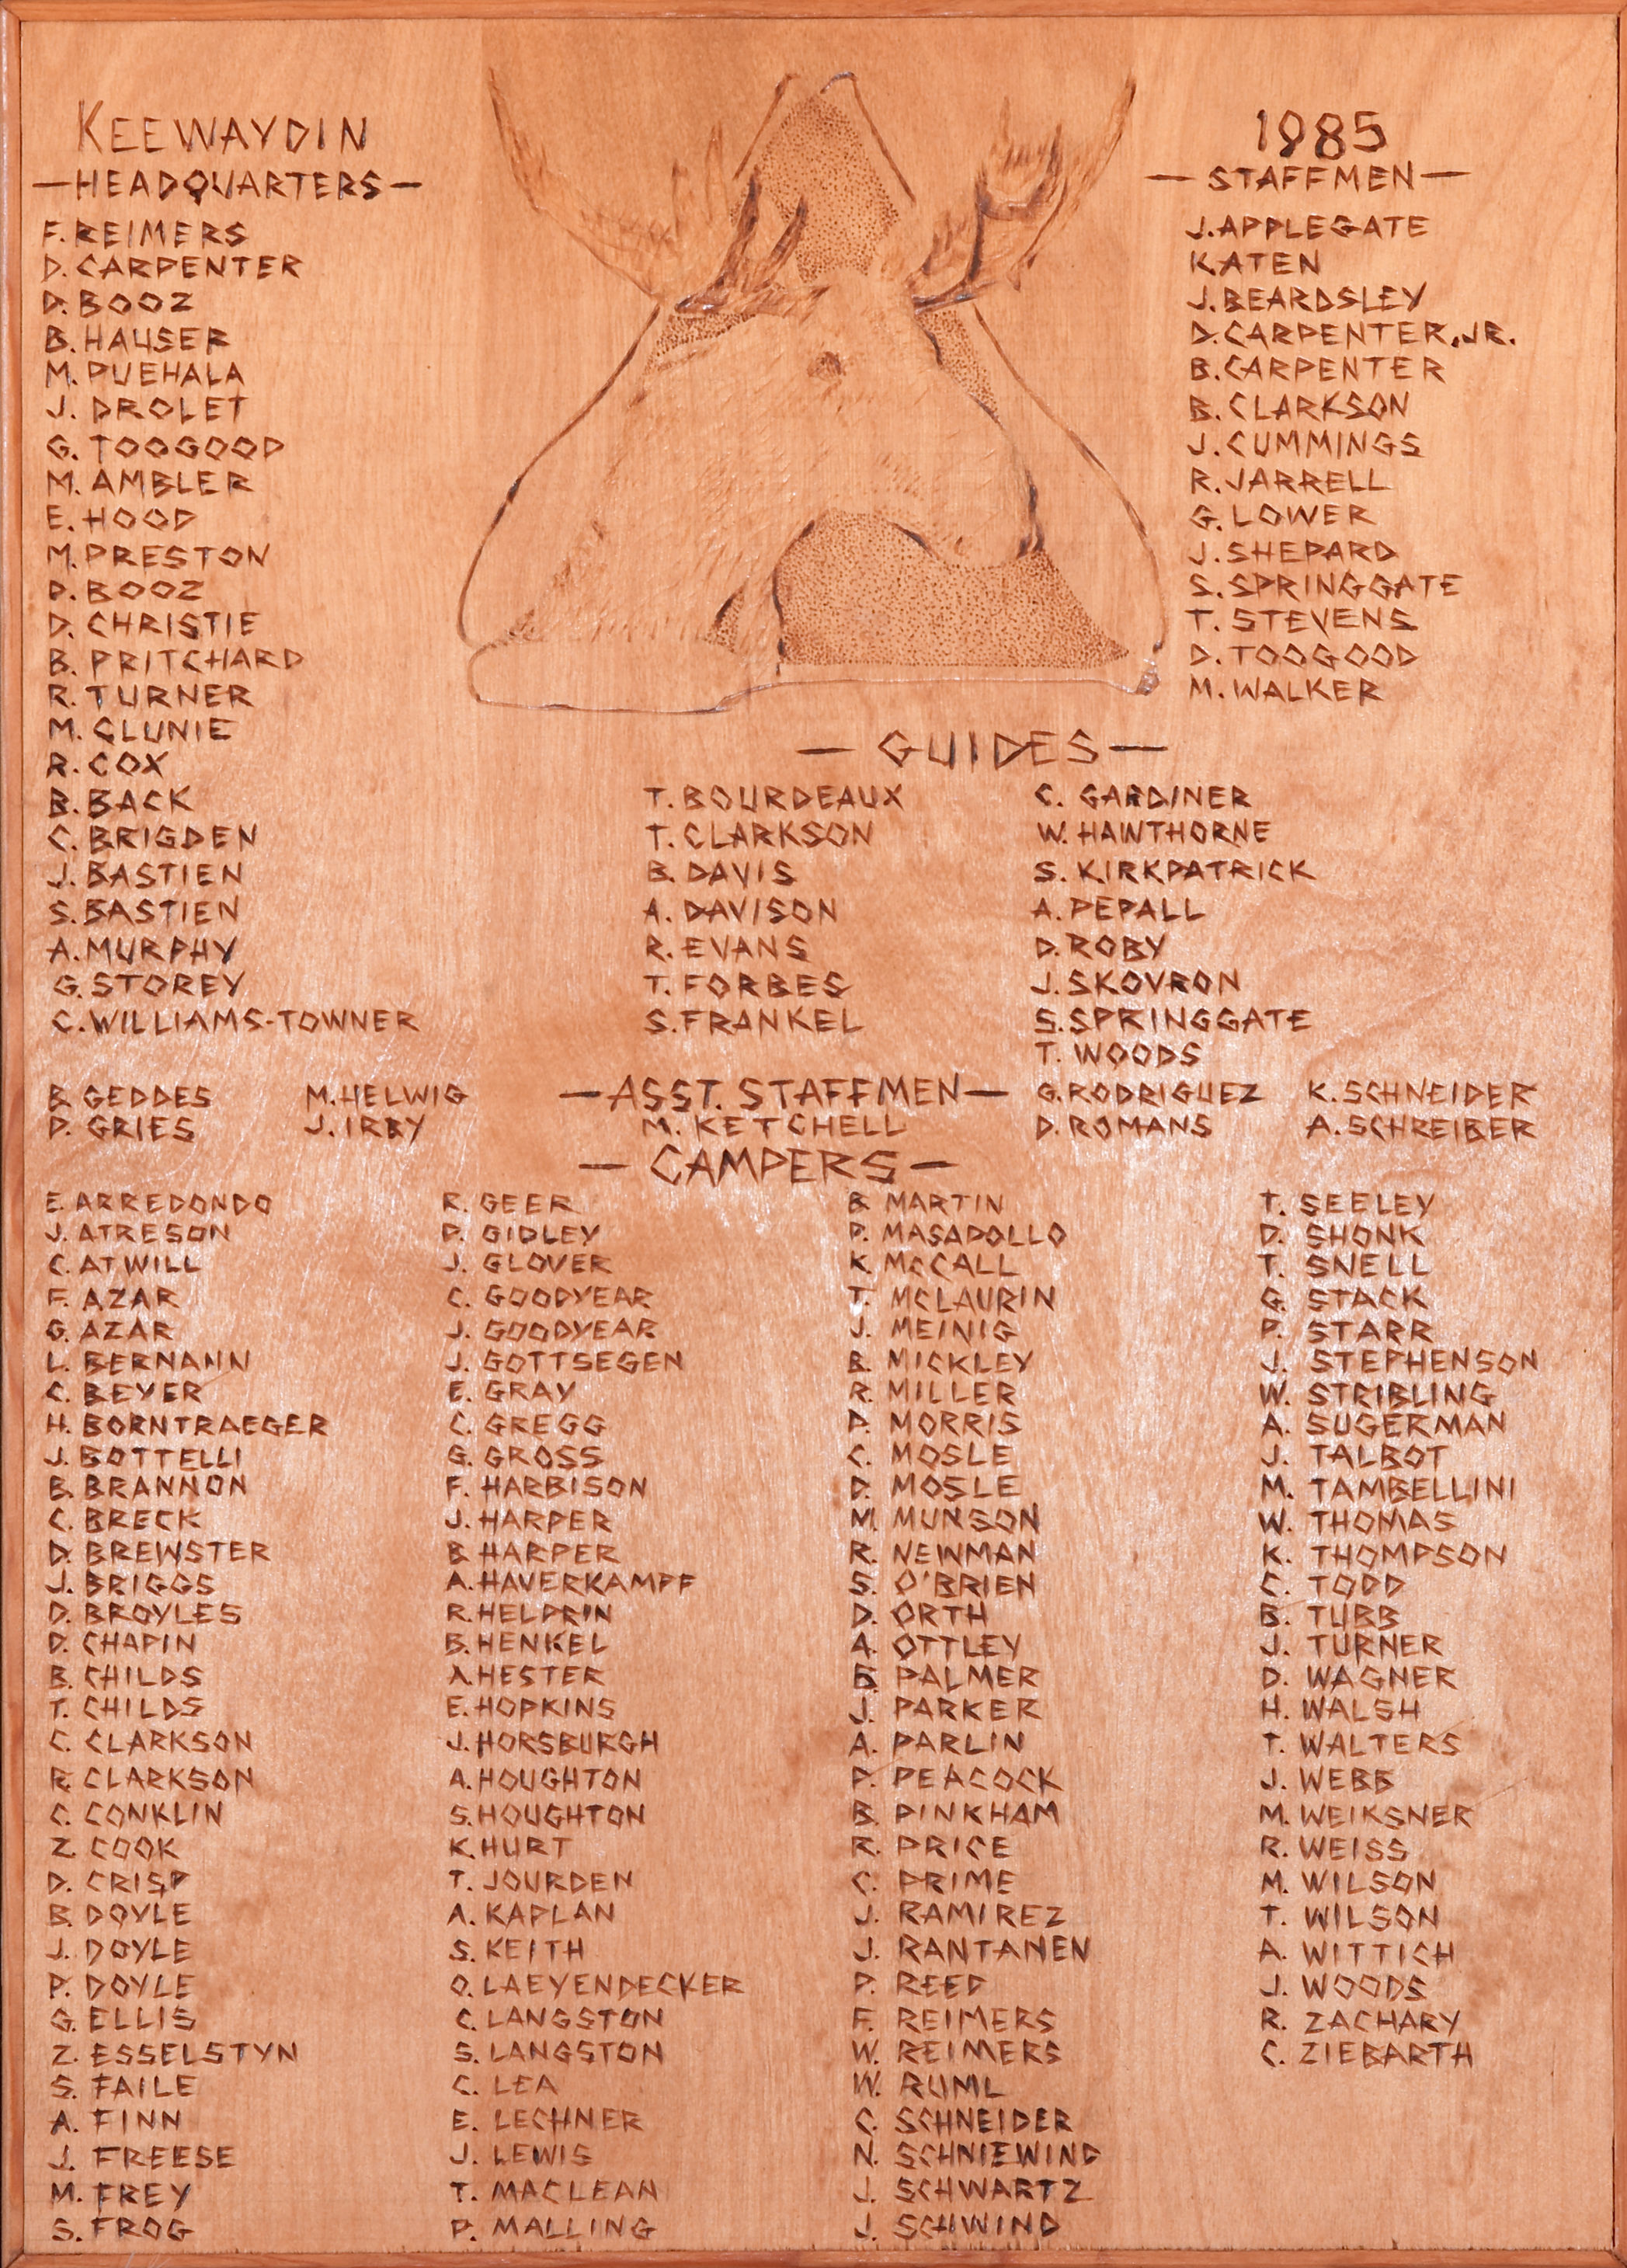 KEEWAYDIN
—HEADQUARTERS—
F. REIMERS
D. CARPENTER
D. BOOZ
B. HAUSER
M. PUEHALA
J. DROLET
G. TOOGOOD
M. AMBLER
E. HOOD
M. PRESTON
P. BOOZ
D. CHRISTIE
B. PRITCHARD
R. TURNER
M. CLUNIE
R. COX
B. BACK
C. BRIGDEN
J. BASTIEN
S. BASTIEN
A. MURPHY
G. STOREY
C. WILLIAMS-TOWNER
1985
— STAFFMEN —
J. APPLEGATE
K. ATEN
J. BEARDSLEY
D. CARPENTER, JR.
B. CARPENTER
B. CLARKSON
J. CUMMINGS
R. JARRELL
G. LOWER
J. SHEPARD
S. SPRINGGATE
T. STEVENS
D. TOOGOOD
M. WALKER
— GUIDES —
T. BOURDEAUX
T. CLARKSON
B. DAVIS
A. DAVISON
R. EVANS
T. FORBES
S. FRANKEL
C. GARDINER
W. HAWTHORNE
S. KIRKPATRICK
A. PEPALL
D. ROBY
J. SKOVRON
S. SPRINGGATE
T. WOODS
—ASST. STAFFMEN—
B. GEDDES
P. GRIES
M. HELWIG
J. IRBY
M. KETCHELL
G. RODRIGUEZ
D. ROMANS
K. SCHNEIDER
A. SCHREIBER
— CAMPERS —
E. ARREDONDO
J. ATRESON
C. ATWILL
F. AZAR
G. AZAR
L. BERMANN
C. BEYER
H. BORNTRAEGER
J. BOTTELLI
B. BRANNON
C. BRECK
D. BREWSTER
J. BRIGGS
D. BROYLES
D. CHAPIN
B. CHILDS
T. CHILDS
C. CLARKSON
R. CLARKSON
C. CONKLIN
Z. COOK
D. CRISP
B. DOYLE
J. DOYLE
P. DOYLE
G. ELLIS
Z. ESSELSTYN
S. FAILE
A. FINN
J. FREESE
M. FREY
S. FROG
R. GEER
P. GIDLEY
J. GLOVER
C. GOODYEAR
J. GOODYEAR
J. GOTTSEGEN
E. GRAY
C. GREGG
G. GROSS
F. HARBISON
J. HARPER
B. HARPER
A. HAVERKAMPF
R. HELPRIN
B. HENKEL
A. HESTER
E. HOPKINS
J. HORSBURGH
A. HOUGHTON
S. HOUGHTON
K. HURT
T. JOURDEN
A. KAPLAN
S. KEITH
O. LAEYENDECKER
C. LANGSTON
S. LANGSTON
C. LEA
E. LECHNER
J. LEWIS
T. MACLEAN
P. MALLING
B. MARTIN
P. MASAPOLLO
K. McCALL
T. McLAURIN
J. MEINIG
B. MICKLEY
R. MILLER
P. MORRIS
C. MOSLE
D. MOSLE
M. MUNSON
R. NEWMAN
S. O'BRIEN
D. ORTH
A. OTTLEY
B. PALMER
J. PARKER
A. PARLIN
P. PEACOCK
B. PINKHAM
R. PRICE
C. PRIME
J. RAMIREZ
J. RANTANEN
P. REED
F. REIMERS
W. REIMERS
W. RUML
C. SCHNEIDER
N. SCHNIEWIND
J. SCHWARTZ
J. SCHWIND
T. SEELEY
D. SHONK
T. SNELL
G. STACK
P. STARR
J. STEPHENSON
W. STRIBLING
A. SUGERMAN
J. TALBOT
M. TAMBELLINI
W. THOMAS
K. THOMPSON
C. TODD
B. TUBB
J. TURNER
D. WAGNER
H. WALSH
T. WALTERS
J. WEBB
M. WEIKSNER
R. WEISS
M. WILSON
T. WILSON
A. WITTICH
J. WOODS
R. ZACHARY
C. ZIEBARTH